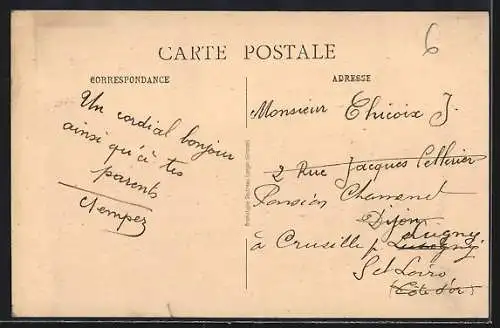 CARTE POSTALE
6
CORRESPONDANCE
ADRESSE
Un cordial bonjour
ainsi qu'à tes
parents
Monsieur Chicoix J.
2 Rue Jacques Cellerier
Pension Chamenet
Dijon
à Crusille p Lugny
S et Loire
(Côte d'or)